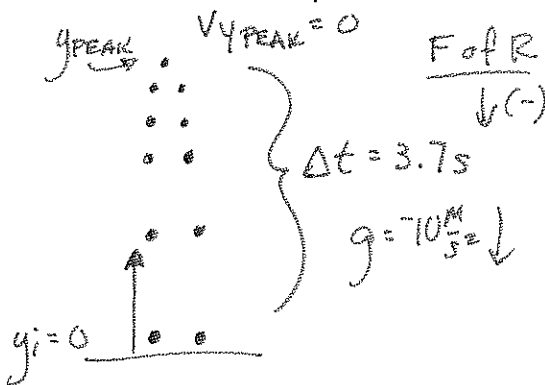 yPEAK
VyPEAK = 0
F of R
↓(-)
Δt = 3.7s
g = -10 M/s² ↓
yi = 0